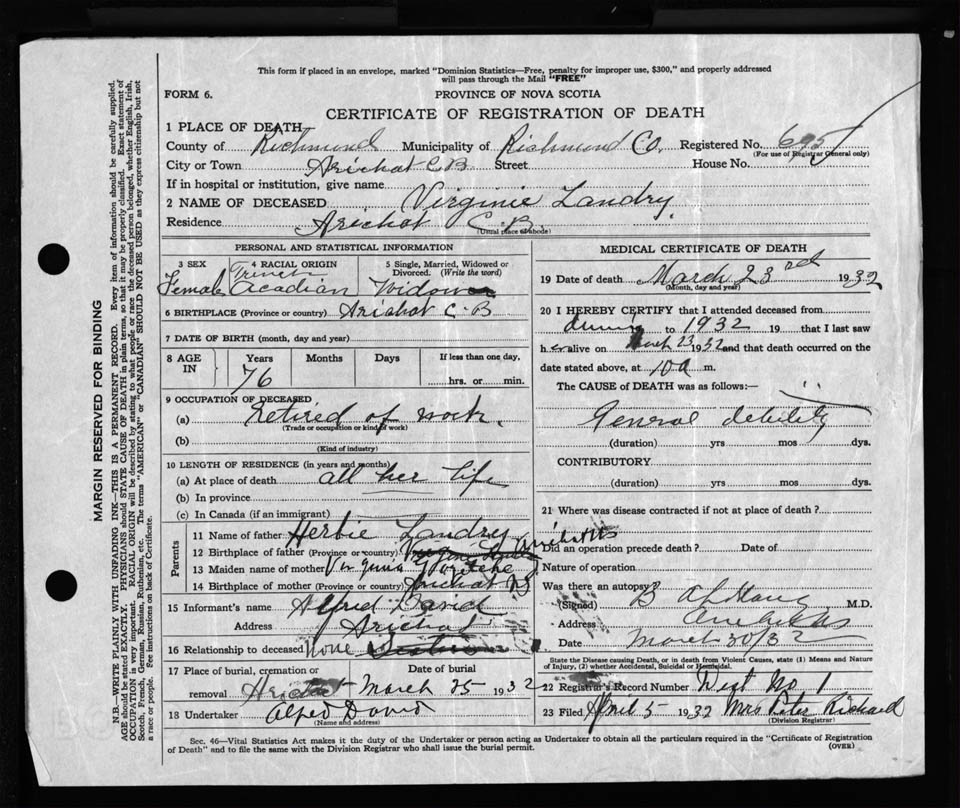 This form if placed in an envelope, marked "Dominion Statistics—Free, penalty for improper use, $300," and properly addressed
will pass through the Mail "FREE"
FORM 6. PROVINCE OF NOVA SCOTIA
CERTIFICATE OF REGISTRATION OF DEATH
1 PLACE OF DEATH
County of Richmond Municipality of Richmond Co. Registered No.
(For use of Registrar General only)
City or Town Arichat C B Street House No.
If in hospital or institution, give name
2 NAME OF DECEASED Virginie Landry
Residence Arichat C. B.
(Usual place of abode)
PERSONAL AND STATISTICAL INFORMATION
3 SEX 4 RACIAL ORIGIN 5 Single, Married, Widowed or Divorced. (Write the word)
Female French Acadian Widow
6 BIRTHPLACE (Province or country) Arichat C. B
7 DATE OF BIRTH (month, day and year)
8 AGE IN Years Months Days If less than one day,
76 hrs. or min.
9 OCCUPATION OF DECEASED
(a) Retired of work.
(Trade or occupation or kind of work)
(b)
(Kind of industry)
10 LENGTH OF RESIDENCE (in years and months)
(a) At place of death all her life
(b) In province
(c) In Canada (if an immigrant)
Parents
11 Name of father Herbie Landry
12 Birthplace of father (Province or country) Arichat
13 Maiden name of mother
14 Birthplace of mother (Province or country) Arichat
15 Informant's name Alfred David
Address Arichat
16 Relationship to deceased None
17 Place of burial, cremation or removal Date of burial
Arichat March 25 1932
18 Undertaker Alfred David
(Name and address)
MEDICAL CERTIFICATE OF DEATH
19 Date of death March 23rd 1932
(Month, day and year)
20 I HEREBY CERTIFY that I attended deceased from
during to 1932 19 that I last saw
her alive on March 23 1932 and that death occurred on the
date stated above, at 10 a m.
The CAUSE of DEATH was as follows:—
General debility
(duration) yrs mos dys.
CONTRIBUTORY
(duration) yrs mos dys.
21 Where was disease contracted if not at place of death?
Did an operation precede death? Date of
Nature of operation
Was there an autopsy
(Signed) M.D.
Address
Date March 30/32
State the Disease causing Death, or in death from Violent Causes, state (1) Means and Nature of Injury, (2) whether Accidental, Suicidal or Homicidal.
22 Registrar's Record Number Dist No 1
23 Filed April 5 1932 Mrs Peter Richard
(Division Registrar)
Sec. 46—Vital Statistics Act makes it the duty of the Undertaker or person acting as Undertaker to obtain all the particulars required in the "Certificate of Registration
of Death" and to file the same with the Division Registrar who shall issue the burial permit.
(OVER)
MARGIN RESERVED FOR BINDING
N.B.—WRITE PLAINLY WITH UNFADING INK—THIS IS A PERMANENT RECORD. Every item of information should be carefully supplied.
AGE should be stated EXACTLY. PHYSICIANS should STATE CAUSE OF DEATH in plain terms, so that it may be properly classified. Exact statement of
OCCUPATION is very important. RACIAL ORIGIN will be described by stating to what people or race the deceased person belonged, whether English, Irish,
Scotch, French, German, Russian, Ruthenian, etc. The terms "AMERICAN" or "CANADIAN" SHOULD NOT BE USED as they express citizenship but not
a race or people. Fee instructions on back of Certificate.